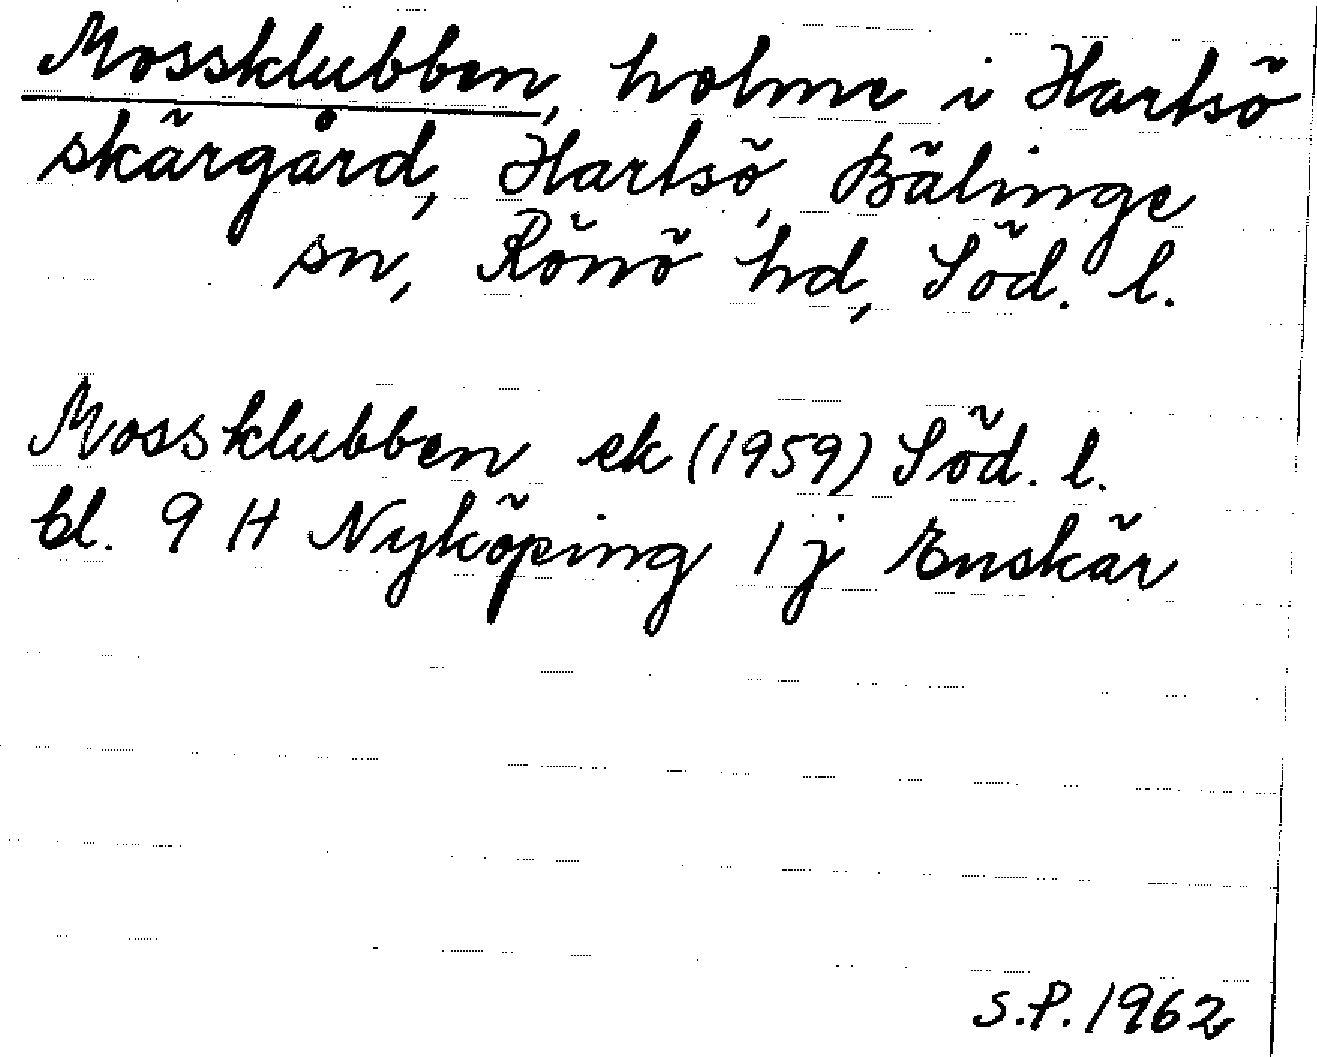 Mossklubben, holme i Hartsö
skärgård, Hartsö, Bälinge
sn, Rönö hd, Söd. l.
Mossklubben ek (1959) Söd. l.
bl. 9 H Nyköping 1 j Enskär
S.P. 1962